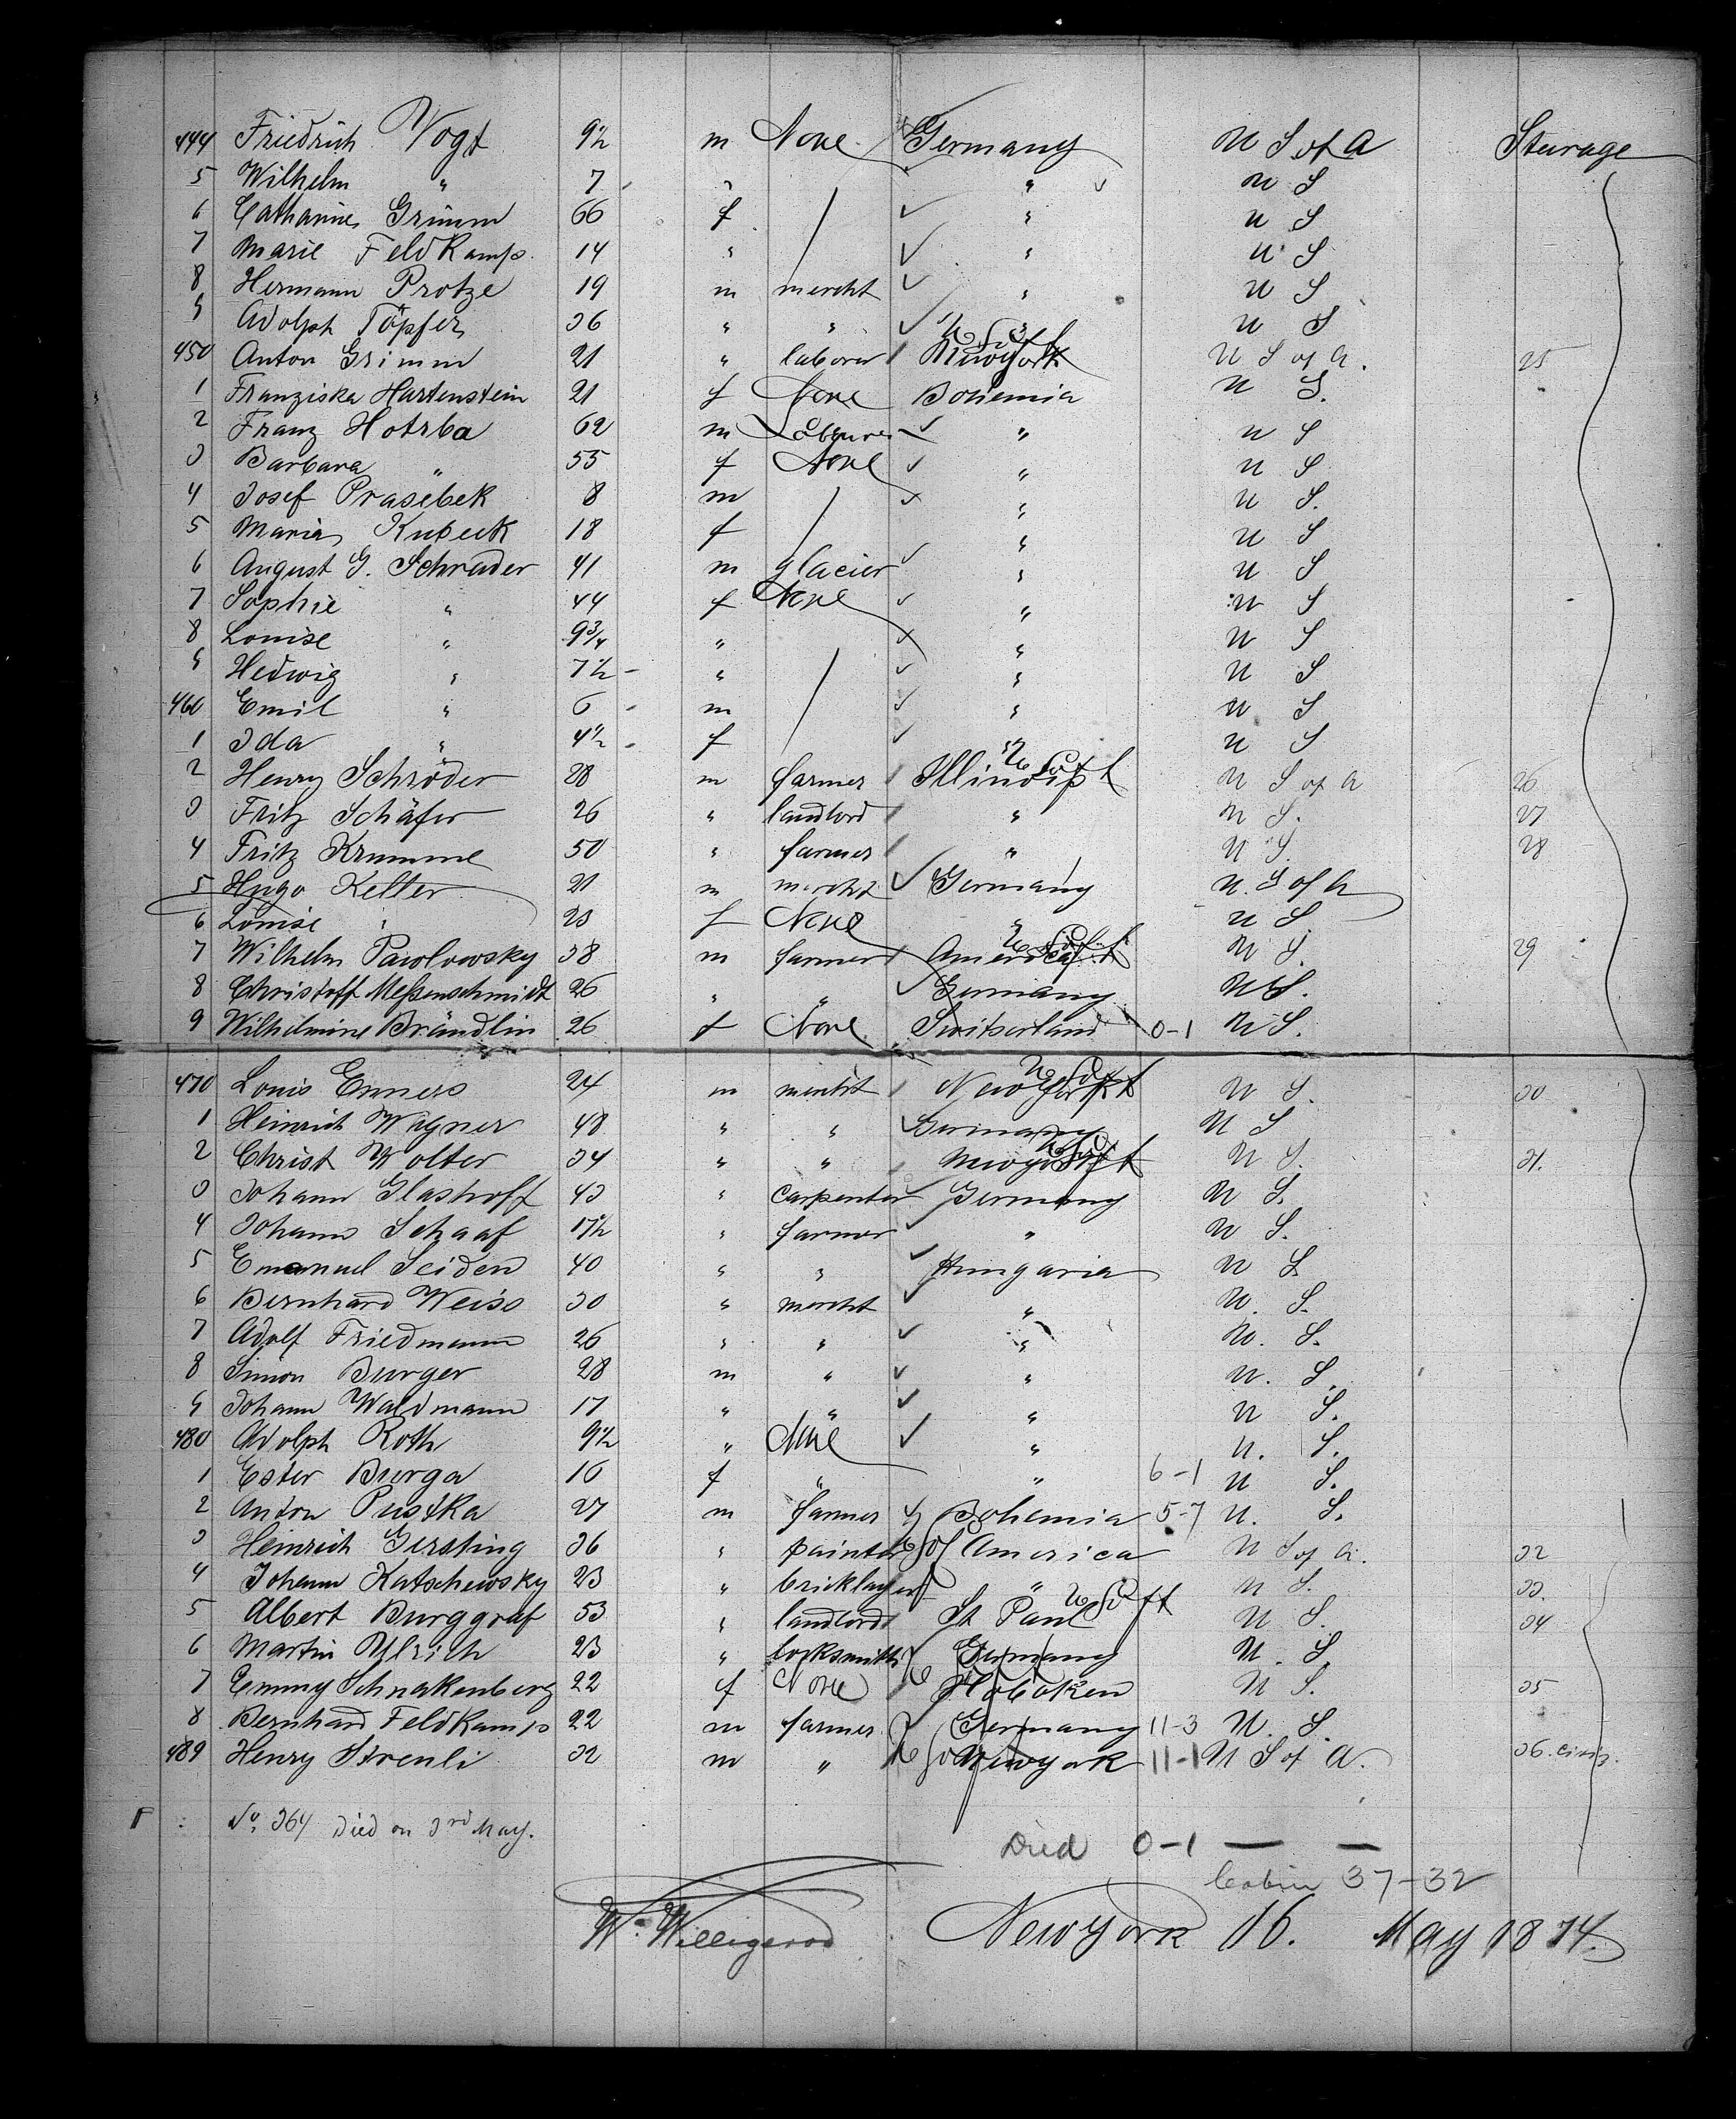 444 Friedrich Vogt 9½ m None Germany U S of A Steerage
5 Wilhelm " 7 " " U S
6 Catharine Grimm 66 f " U S
7 Marie Feldkamp. 14 " " U S
8 Hermann Protze 19 m mercht " U S
9 Adolph Töpfer 36 " " " U S
450 Anton Grimm 21 " laborer Newyork U S of A U S of A. 25
1 Franziska Hartenstein 21 f None Bohemia U S.
2 Franz Hotrba 62 m Labourer " U S
3 Barbara " 55 f None " U S
4 Josef Prasebek 8 m " U S.
5 Maria Kubeck 18 f " U S
6 August G. Schrader 41 m glacier " U S
7 Sophie " 44 f None " U S
8 Louise " 9¾ " " U S
9 Hedwig " 7½ " " U S
460 Emil " 6 m " U S
1 Ida " 4½ f " U S
2 Henry Schröder 28 m farmer Illinois U S of A 26
3 Fritz Schäfer 26 " landlord " U S. 27
4 Fritz Krumme 50 " farmer " U S. 28
5 Hugo Keller 21 m mercht Germany U. S of A
6 Louise " 23 f None " U S
7 Wilhelm Pawlowsky 38 m farmer America U S. 29
8 Christoff Meßenschmidt 26 " " Germany U S.
9 Wilhelmine Brändlin 26 f None Switserland 0-1 U S.
470 Louis Enners 24 m mercht New York U S. 30
1 Heinrich Wagner 48 " " Germany U S
2 Christ Wolter 34 " " Newyork U S. 31.
3 Johann Glashoff 43 " carpenter Germany U S.
4 Johann Schaaf 17½ " farmer " U S.
5 Emanuel Seiden 40 " " Hungaria U S
6 Bernhard Weiss 30 " mercht " U. S.
7 Adolf Friedmann 26 " " " U. S.
8 Simon Burger 28 m " " U. S.
9 Johann Waldmann 17 " " " U S.
480 Adolph Roth 9½ " None " U. S.
1 Ester Burga 16 f " " 6-1 U S.
2 Anton Pustka 27 m farmer Bohemia 5-7 U. S.
3 Heinrich Gersting 36 " painter America U S of A. 32
4 Johann Katschewsky 23 " bricklayer " U S. 33.
5 Albert Burggraf 53 " landlord St Paul U S. 34
6 Martin Ulrich 23 " locksmith Germany U. S.
7 Emmy Schnakenberg 22 f None Hoboken U S. 35
8 Bernhard Feldkamp 22 m farmer Germany 11-3 U. S.
489 Henry Strenli 32 m " Newyork 11-1 U S of A. 36
No. 364 Died on 3rd May.
Died 0-1 — —
Cabin 37-32
W. Willigerod New York 16. May 1874.